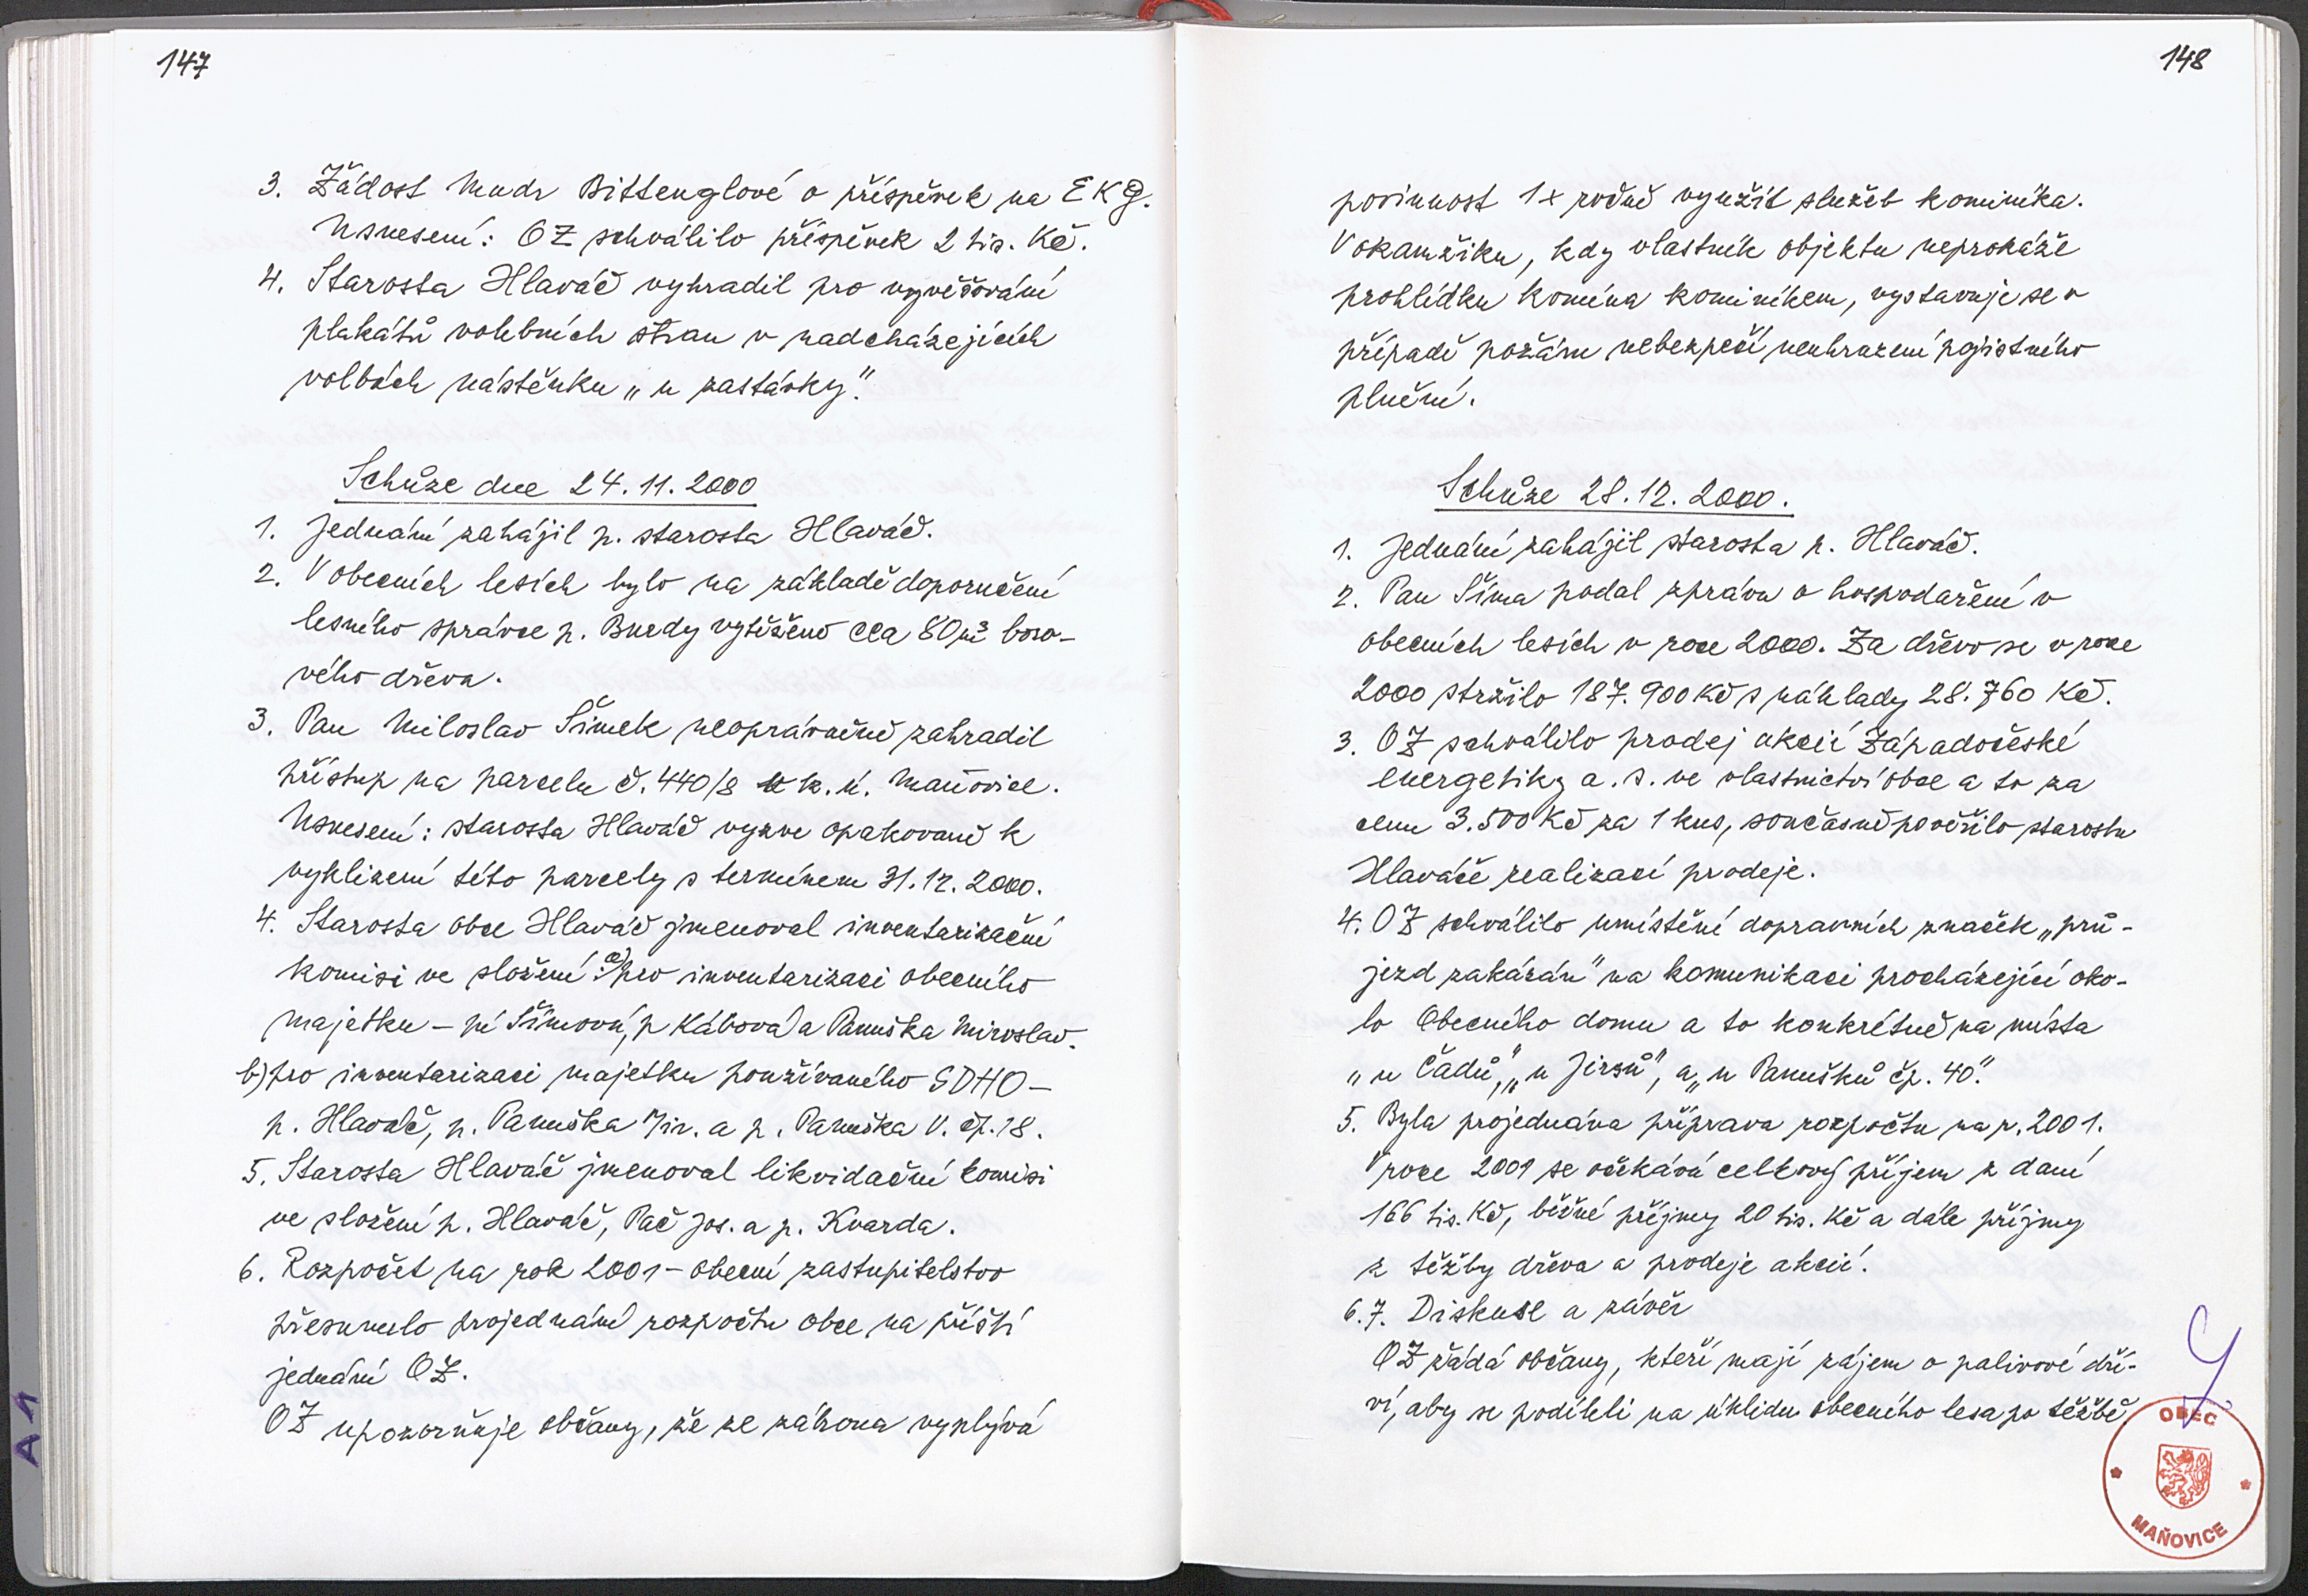 147
3. Žádost Mudr Bittenglové o příspěvek na EKG.
Usnesení: OZ schválilo příspěvek 2 tis. Kč.
4. Starosta Hlaváč vyhradil pro vyvěšování
plakátů volebních stran v nadcházejících
volbách nástěnku „u zastávky".
Schůze dne 24.11.2000
1. Jednání zahájil p. starosta Hlaváč.
2. V obecních lesích bylo na základě doporučení
lesního správce p. Burdy vytěženo cca 80 m³ boro-
vého dřeva.
3. Pan Miloslav Šimek neoprávněně zahradil
přístup na parcelu č. 440/8 k.ú. Maňovice.
Usnesení: starosta Hlaváč vyzve opakovaně k
vyklizení této parcely s termínem 31.12.2000.
4. Starosta obce Hlaváč jmenoval inventarizační
komisi ve složení: a) pro inventarizaci obecního
majetku – pí Šímová, p Kábová a Panuška Miroslav.
b) pro inventarizaci majetku používaného SDHO –
p. Hlaváč, p. Panuška Jir. a p. Panuška V. čp. 18.
5. Starosta Hlaváč jmenoval likvidační komisi
ve složení p. Hlaváč, Pač Jos. a p. Kvarda.
6. Rozpočet na rok 2001 – obecní zastupitelstvo
přesunulo projednání rozpočtu obce na příští
jednání OZ.
OZ upozorňuje občany, že ze zákona vyplývá
A1
148
povinnost 1x ročně využít služeb kominíka.
V okamžiku, kdy vlastník objektu neprokáže
prohlídku komína kominíkem, vystavuje se v
případě požáru nebezpečí neuhrazení pojistného
plnění.
Schůze 28.12.2000.
1. Jednání zahájil starosta p. Hlaváč.
2. Pan Šíma podal zprávu o hospodaření v
obecních lesích v roce 2000. Za dřevo se v roce
2000 stržilo 187.900 Kč s náklady 28.760 Kč.
3. OZ schválilo prodej akcií Západočeské
energetiky a.s. ve vlastnictví obce a to za
cenu 3.500 Kč za 1 kus, současně pověřilo starostu
Hlaváče realizací prodeje.
4. OZ schválilo umístění dopravních značek „prů-
jezd zakázán" na komunikaci procházející oko-
lo Obecního domu a to konkrétně na místa
„u Čadů", „u Jirsů", a „u Panušků čp. 40".
5. Byla projednána příprava rozpočtu na r. 2001.
V roce 2001 se očekává celkový příjem z daní
166 tis. Kč, běžné příjmy 20 tis. Kč a dále příjmy
z těžby dřeva a prodeje akcií.
6.7. Diskuse a závěr
OZ žádá občany, kteří mají zájem o palivové dří-
ví, aby se podíleli na úklidu obecního lesa po těžbě
OBEC
MAŇOVICE